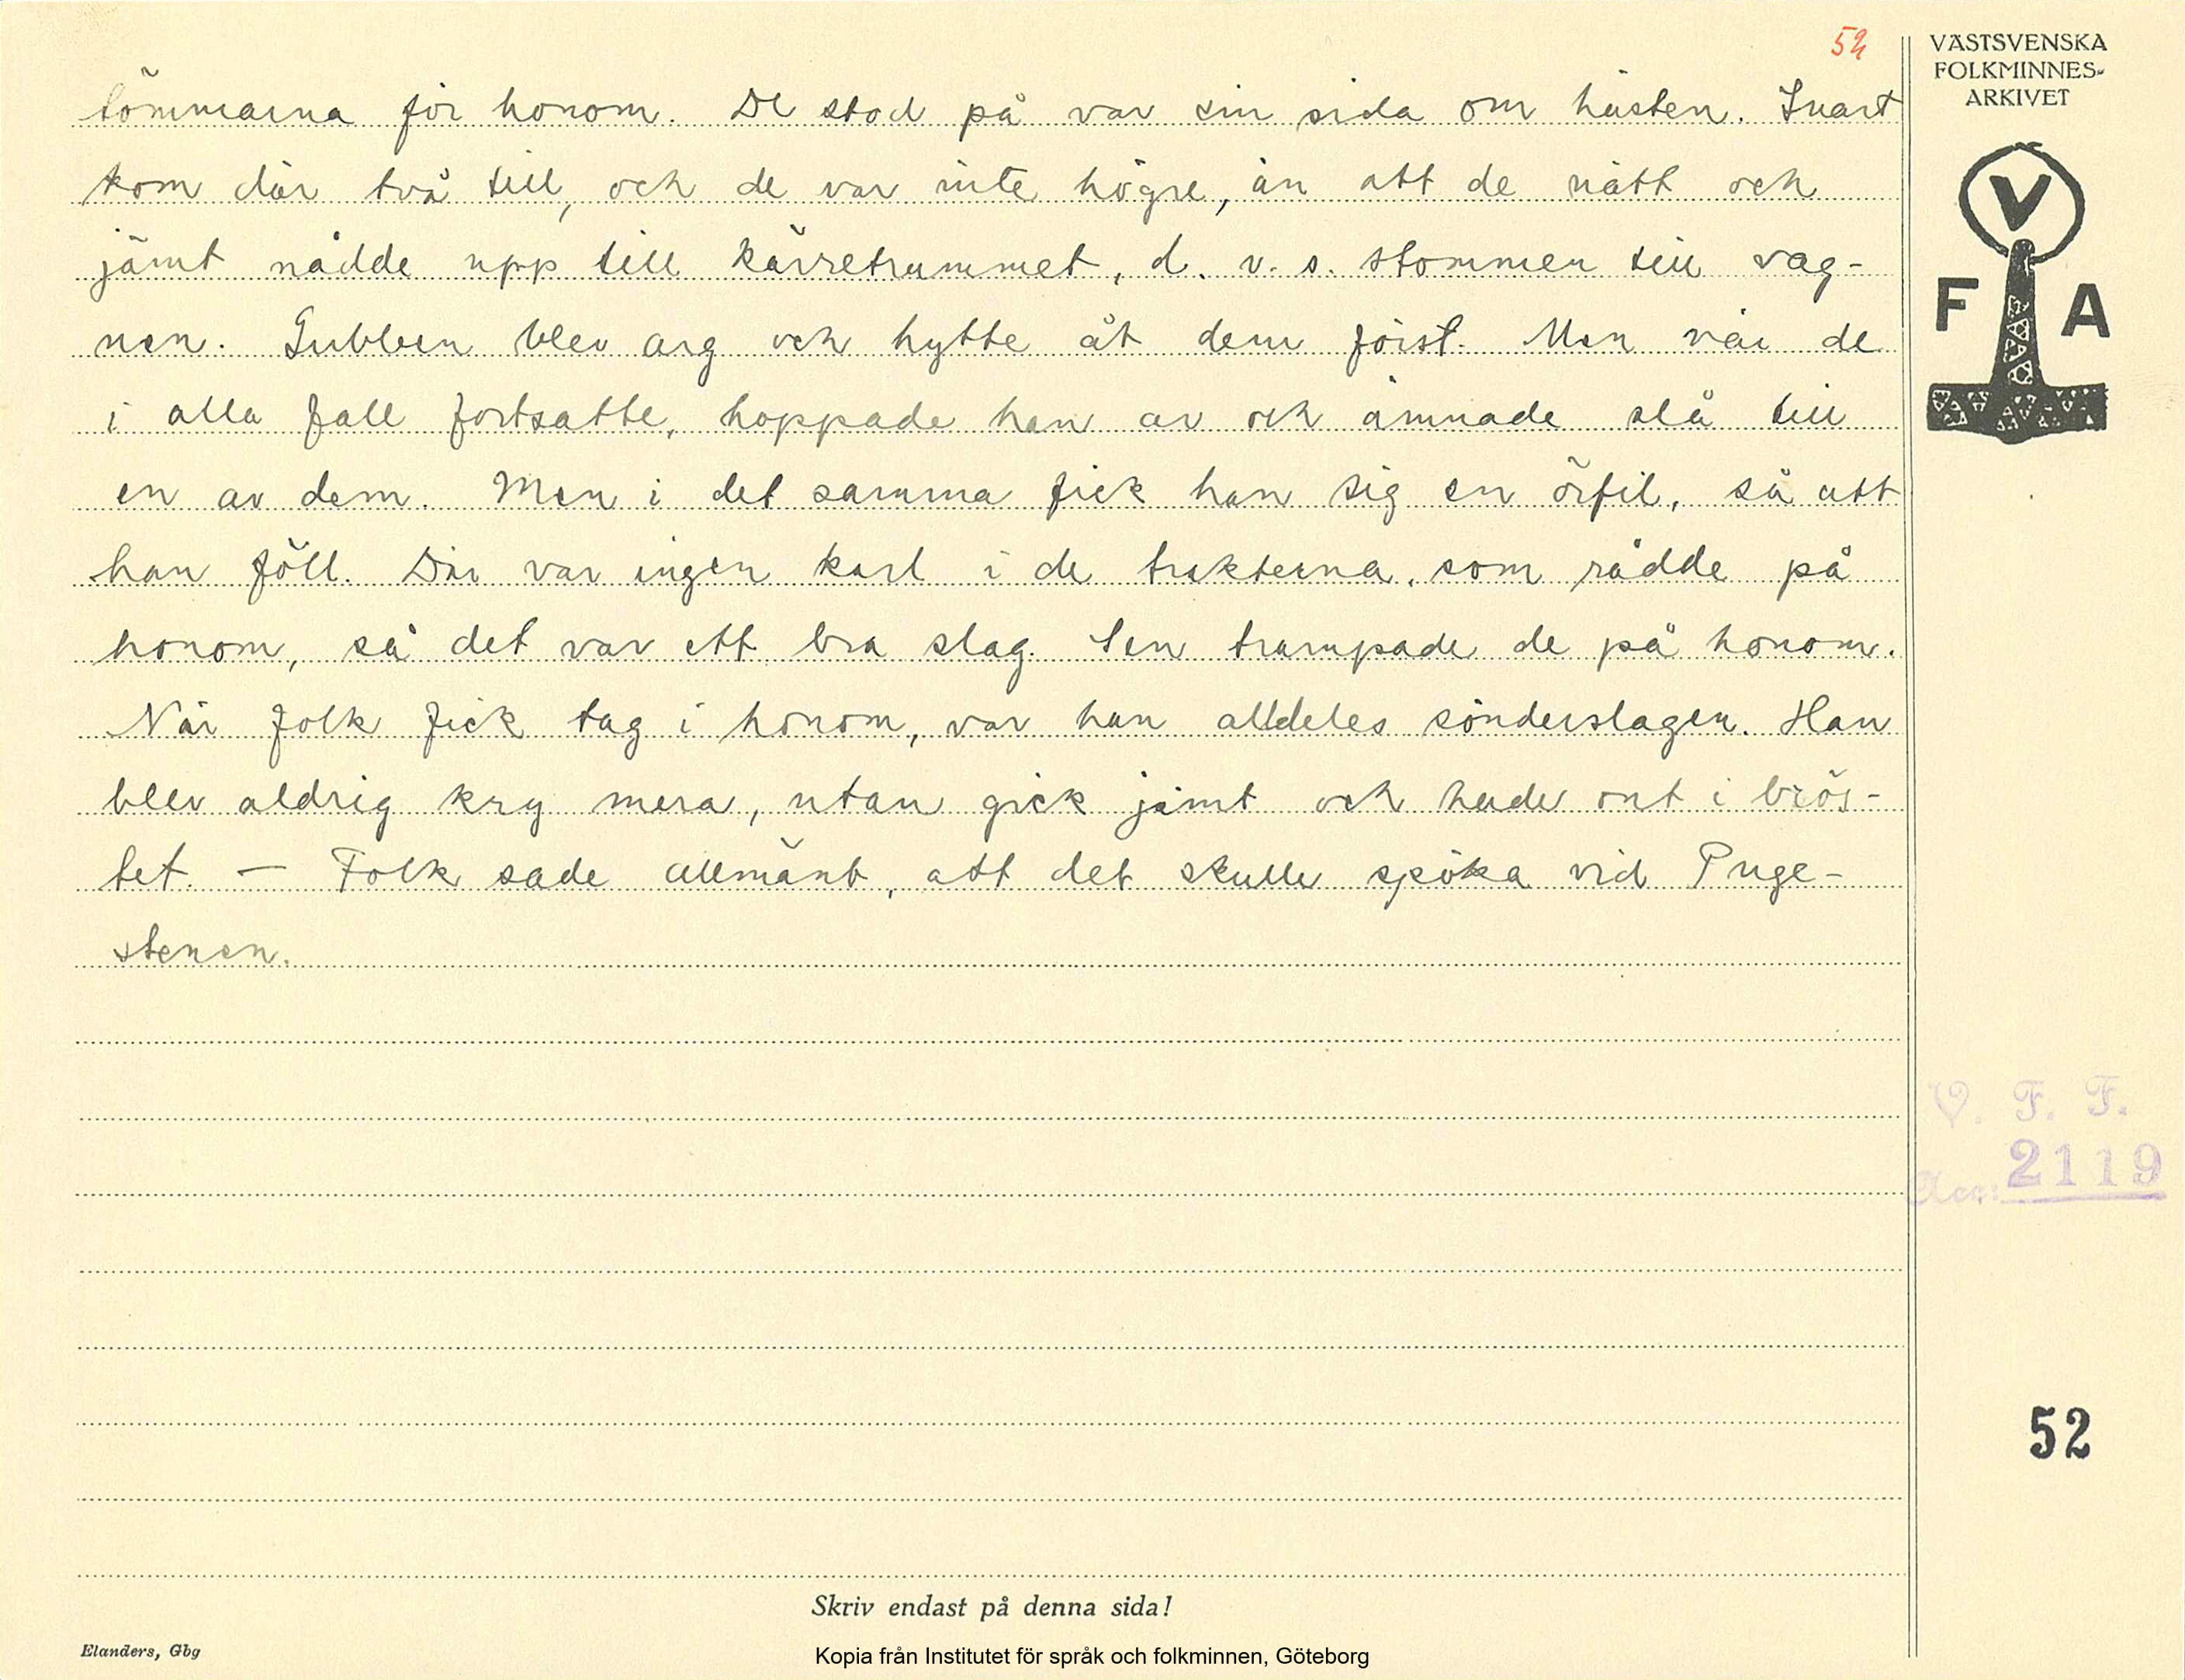 52
VÄSTSVENSKA
FOLKMINNES-
ARKIVET
V
F A
tömmarna för honom. De stod på var sin sida om hästen. Snart
kom där två till, och de var inte högre, än att de nätt och
jämt nådde upp till kärretrummet, d. v. s. stommen till vag-
nen. Gubben blev arg och hytte åt dem först. Men när de
i alla fall fortsatte, hoppade han av och ämnade slå till
en av dem. Men i det samma fick han sig en örfil, så att
han föll. Där var ingen karl i de trakterna, som rådde på
honom, så det var ett bra slag. Sen trampade de på honom.
När folk fick tag i honom, var han alldeles sönderslagen. Han
blev aldrig kry mera, utan gick jämt och hade ont i brös-
tet. — Folk sade allmänt, att det skulle spöka vid Puge-
stenen.
V. F. F.
Acc: 2119
52
Skriv endast på denna sida!
Elanders, Gbg
Kopia från Institutet för språk och folkminnen, Göteborg